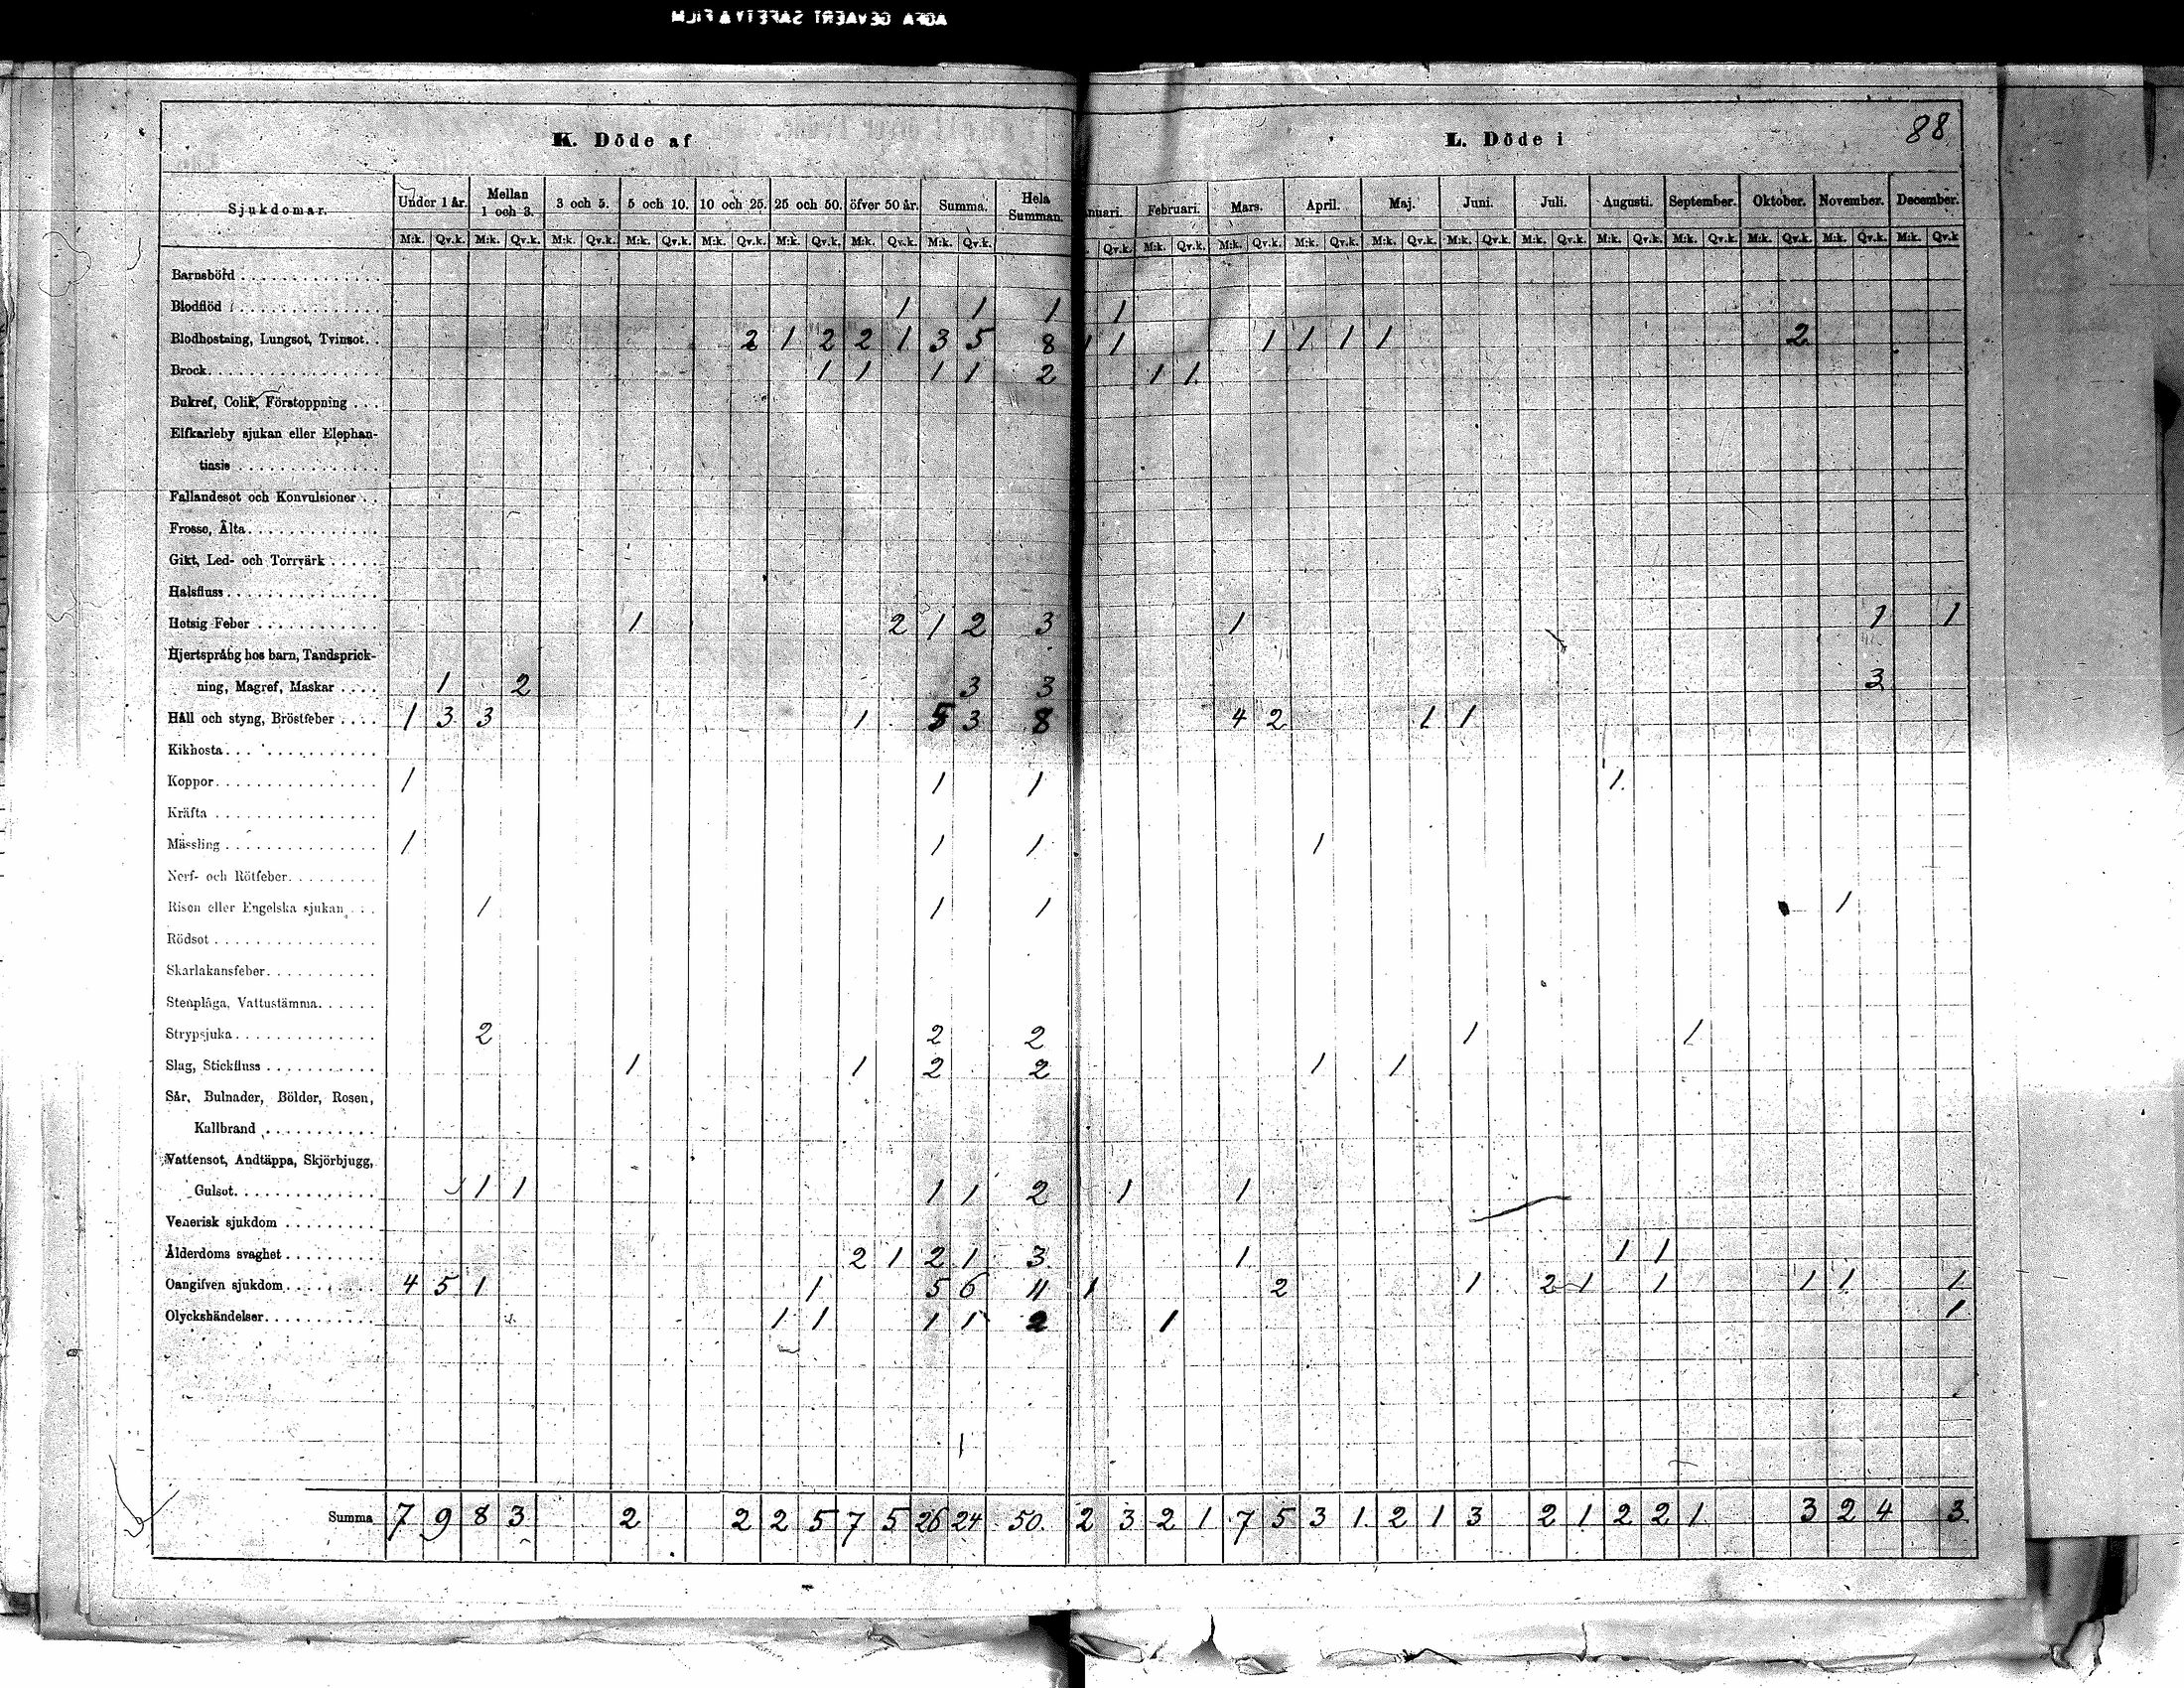 AGFA GEVAERT SAFETY FILM
88
K. Döde af L. Döde i
Sjukdomar. Under 1 år. Mellan 1 och 3. 3 och 5. 5 och 10. 10 och 25. 25 och 50. öfver 50 år. Summa. Hela Summan. nuari. Februari. Mars. April. Maj. Juni. Juli. Augusti. September. Oktober. November. December.
M:k. Qv.k. M:k. Qv.k. M:k. Qv.k. M:k. Qv.k. M:k. Qv.k. M:k. Qv.k. M:k. Qv.k. M:k. Qv.k. Qv.k. M:k. Qv.k. M:k. Qv.k. M:k. Qv.k. M:k. Qv.k. M:k. Qv.k. M:k. Qv.k. M:k. Qv.k. M:k. Qv.k. M:k. Qv.k. M:k. Qv.k. M:k. Qv.k
Barnsbörd
Blodflöd 1 1 1 1
Blodhostning, Lungsot, Tvinsot 2 1 2 2 1 3 5 8 1 1 1 1 1 1 2
Brock 1 1 1 1 2 1 1
Bukref, Colik, Förstoppning
Elfkarleby sjukan eller Elephan-
tiasis
Fallandesot och Konvulsioner
Frosse, Älta
Gikt, Led- och Torrvärk
Halsfluss
Hetsig Feber 1 2 1 2 3 1 1 1
Hjertsprång hos barn, Tandsprick-
ning, Magref, Maskar 1 2 3 3 3
Håll och styng, Bröstfeber 1 3 3 1 5 3 8 4 2 1 1
Kikhosta
Koppor 1 1 1 1
Kräfta
Mässling 1 1 1 1
Nerf- och Rötfeber
Risen eller Engelska sjukan 1 1 1 1
Rödsot
Skarlakansfeber
Stenplåga, Vattustämma
Strypsjuka 2 2 2 1 1
Slag, Stickfluss 1 1 2 2 1 1
Sår, Bulnader, Bölder, Rosen,
Kallbrand
Vattensot, Andtäppa, Skjörbjugg,
Gulsot 1 1 1 1 2 1 1
Venerisk sjukdom
Ålderdoms svaghet 2 1 2 1 3 1 1 1
Oangifven sjukdom 4 5 1 1 5 6 11 1 2 1 2 1 1 1 1 1
Olyckshändelser 1 1 1 1 2 1 1
Summa 7 9 8 3 2 2 2 5 7 5 26 24 50. 2 3 2 1 7 5 3 1 2 1 3 2 1 2 2 1 3 2 4 3